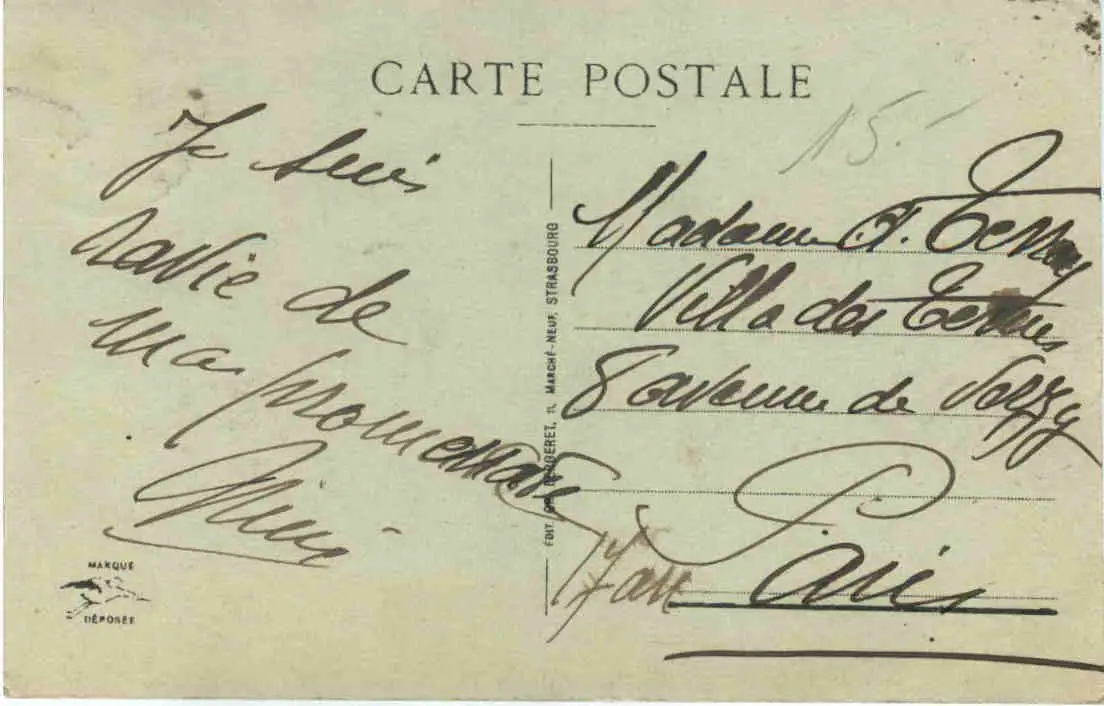 CARTE POSTALE
15.-
Je suis
ravie de
ma promenade
Madame
Villa des Ternes
8 avenue de Verzy
Paris
ÉDIT. BERGERET, 11, MARCHÉ-NEUF, STRASBOURG
MARQUE
DÉPOSÉE